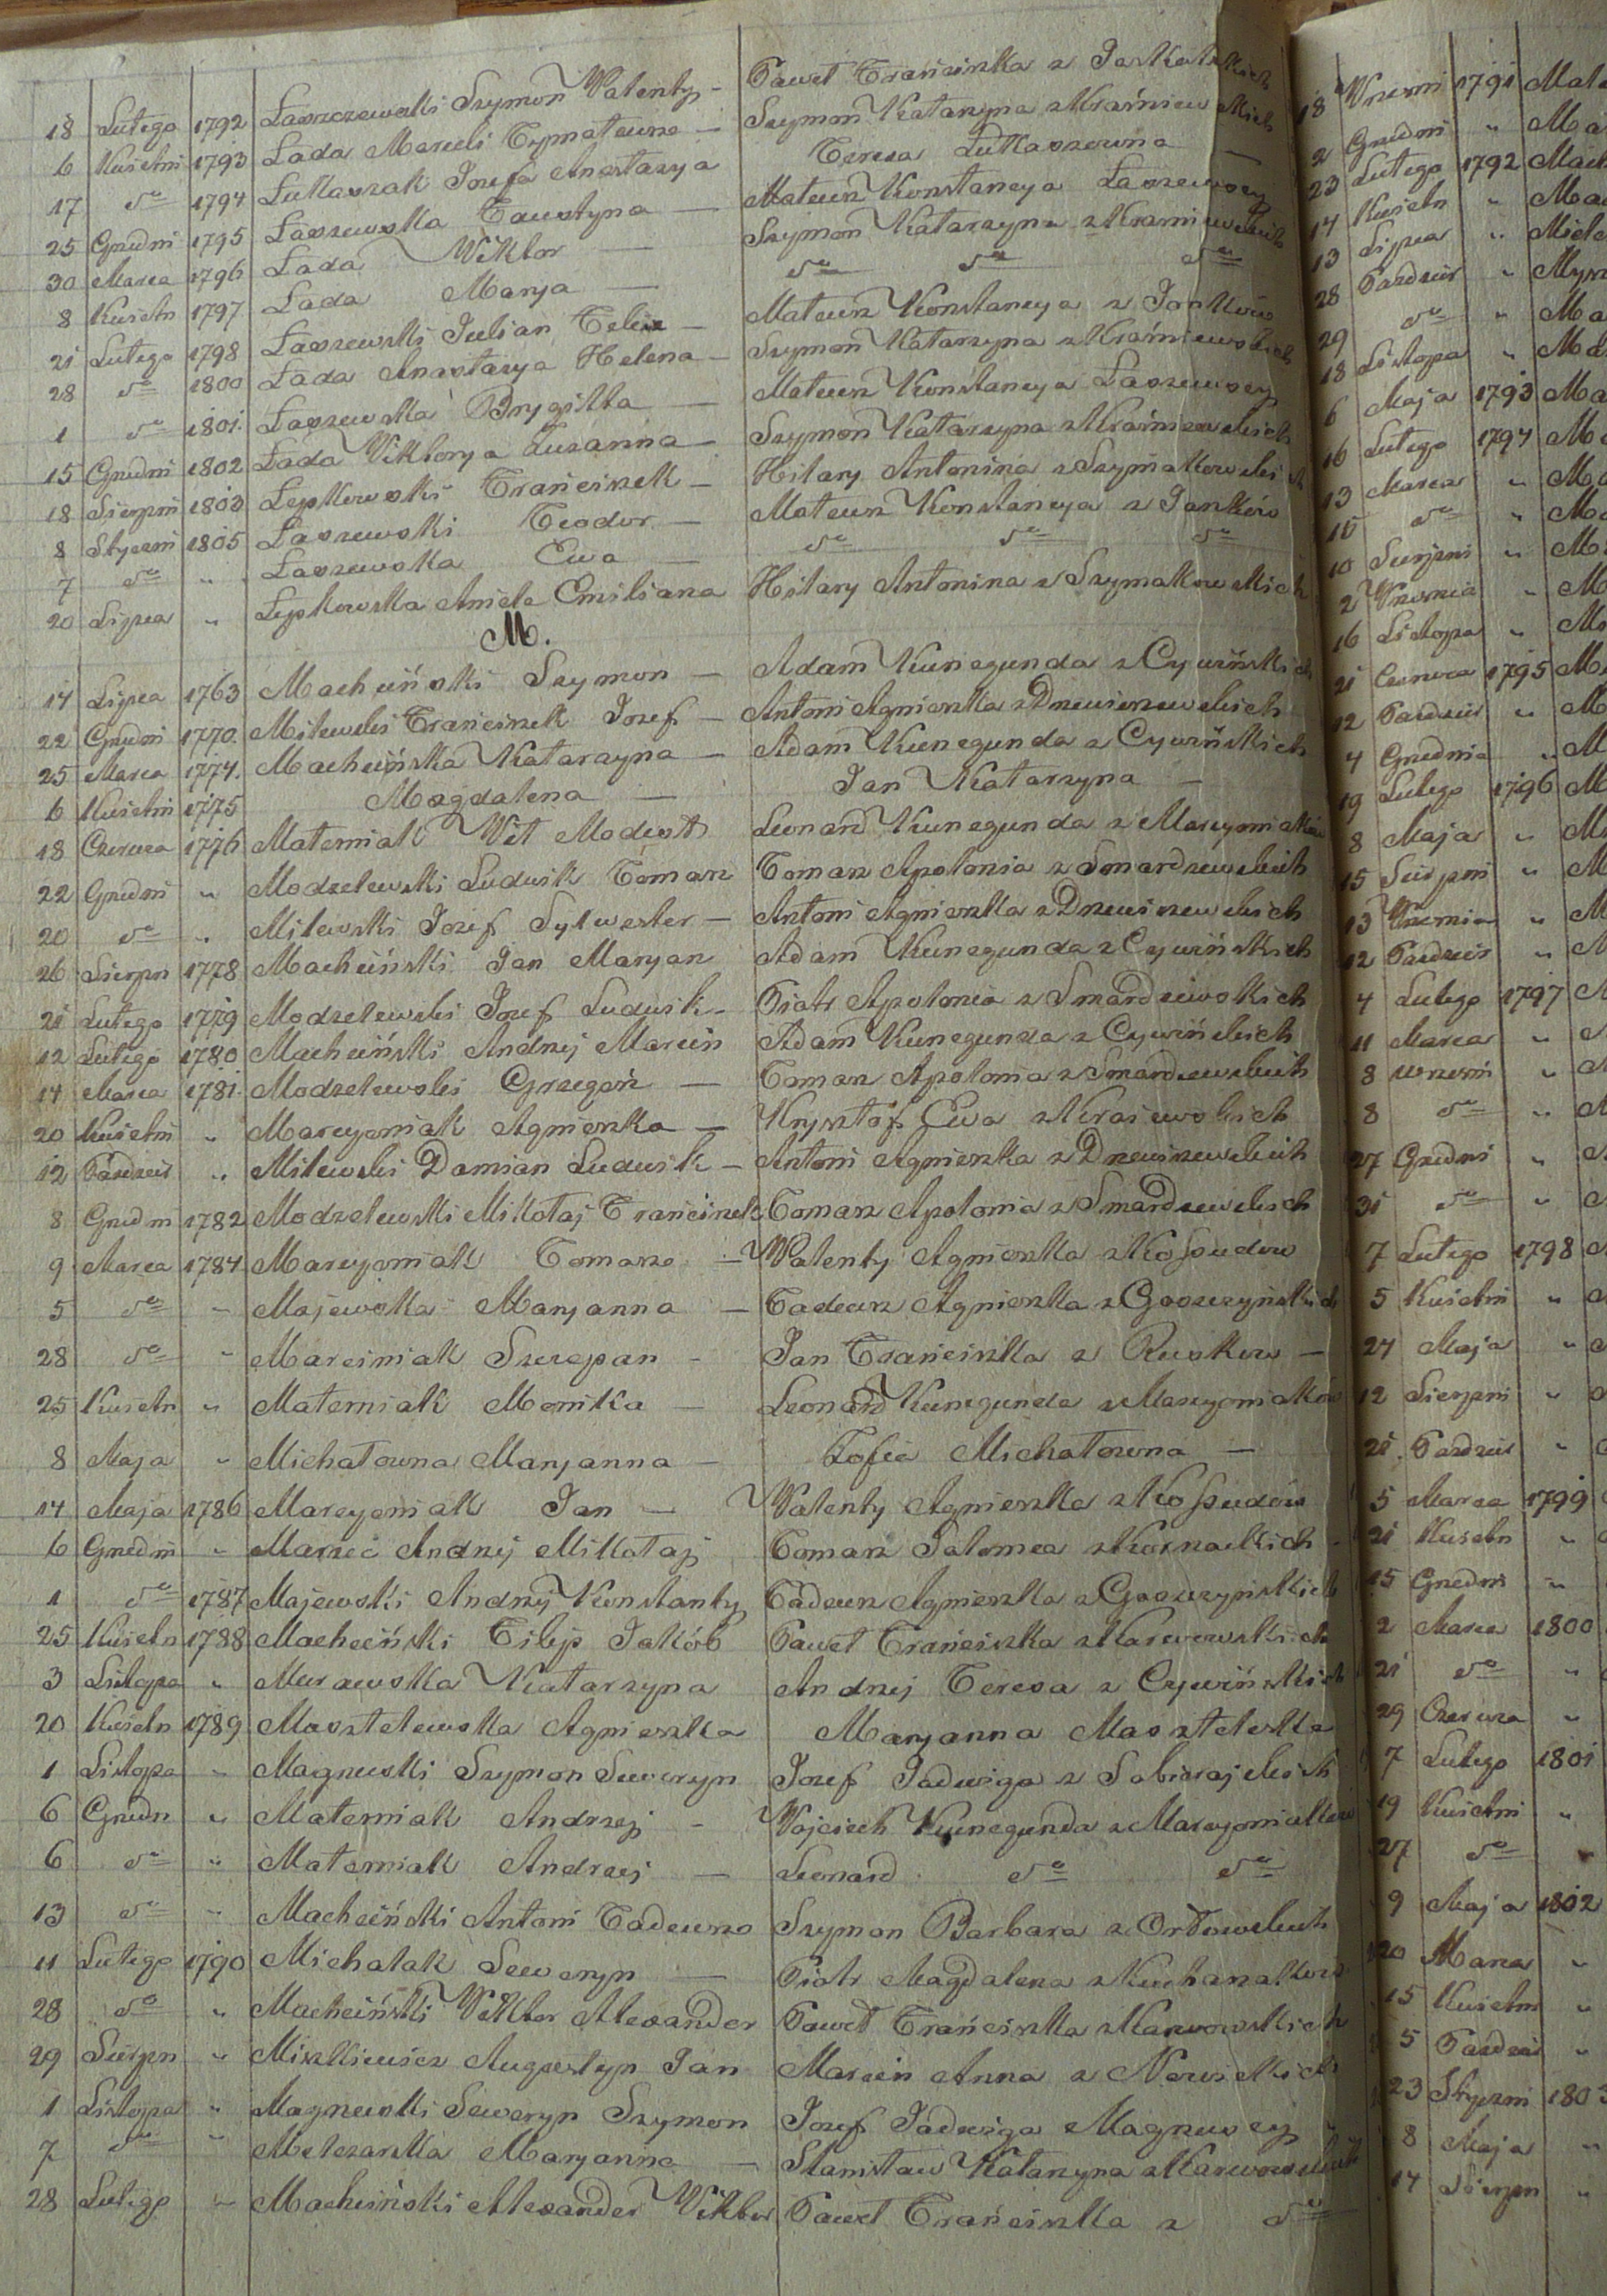 18 Lutego 1792 Łaszczewski Szymon Walenty - Paweł Franciszka z
6 Kwietni 1793 Łada Marceli Tymateusz — Szymon Katarzyna z Kraśniewskich
17 do 1794 Łukaszak Jozefa Anastazya Teresa Łukaszewna —
25 Grudni 1795 Łaszewska Faustyna — Mateusz Konstancya Łaszewscy
30 Marca 1796 Łada Wiktor — Szymon Katarzyna z Kraśniewskich
8 Kwietn 1797 Łada Marya — do do do
21 Lutego 1798 Łaszewski Julian Felix — Mateusz Konstancya z Janków
28 do 1800 Łada Anastazya Helena — Szymon Katarzyna z Kraśniewskich
1 do 1801. Łaszewska Brygitta — Mateusz Konstancya Łaszewscy
15 Grudni 1802 Łada Wiktorya Zuzanna — Szymon Katarzyna z Kraśniewskich
18 Sierpni 1803 Łepkowski Franciszek — Hilary Antonina z Szymakowskich
8 Styczni 1805 Łaszewski Teodor — Mateusz Konstancya z Janków
7 do „ Łaszewska Ewa — do do do
20 Lipca „ Łepkowska Aniela Emiliana Hilary Antonina z Szymakowskich
M.
14 Lipca 1763 Macheiński Szymon — Adam Kunegunda z Cywińskich
22 Grudni 1770. Milewski Franciszek Jozef — Antoni Agnieszka z Drewiszewskich
25 Marca 1774. Macheińska Katarzyna — Adam Kunegunda z Cywińskich
6 Kwietni 1775 Magdalena — Jan Katarzyna —
18 Czerwca 1776 Materniak Wit Modest Leonard Kunegunda z Marcyoniaków
22 Grudni „ Modzelewski Ludwik Tomasz Tomasz Apolonia z Smardzewskich
20 do „ Milewski Jozef Sylwester — Antoni Agnieszka z Drewiszewskich
26 Sierpn 1778 Macheiński Jan Maryan Adam Kunegunda z Cywińskich
21 Lutego 1779 Modzelewski Jozef Ludwik - Piotr Apolonia z Smardzewskich
12 Lutego 1780 Macheiński Andrzej Marcin Adam Kunegunda z Cywińskich
14 Marca 1781. Modzelewski Grzegorz — Tomasz Apolonia z Smardzewskich
20 Kwietni „ Marcyoniak Agnieszka — Krysztof Ewa z Krajewskich
12 Pazdzier „ Milewski Damian Ludwik — Antoni Agnieszka z Drewiszewskich
8 Grudni 1782 Modzelewski Mikołaj Franciszek Tomasz Apolonia z Smardzewskich
9 Marca 1784 Marcyoniak Tomasz — Walenty Agnieszka z Kossudów
5 do „ Majewska Maryanna — Tadeusz Agnieszka z Goszczyńskich
28 do „ Marciniak Szczepan - Jan Franciszka z Rusków —
25 Kwietn „ Materniak Monika — Leonard Kunegunda z Marcyoniaków
8 Maja „ Michałowna Maryanna — Zofia Michałowna —
14 Maja 1786 Marcyoniak Jan — Walenty Agnieszka z Kossudów
6 Grudni „ Marzec Andrzej Mikołaj Tomasz Salomea z Kucznackich -
1 do 1787 Majewski Andrzej Konstanty Tadeusz Agnieszka z Goszczyńskich
25 Kwietn 1788 Macheiński Filip Jakób Paweł Franciszka z Karwowskich
3 Listopa „ Murawska Katarzyna Andrzej Teresa z Cywińskich
20 Kwietn 1789 Masztelewska Agnieszka Maryanna Masztelska
1 Listopa „ Magnuski Szymon Seweryn Jozef Jadwiga z Sobierajskich
6 Grudn „ Materniak Andrzej - Wojciech Kunegunda z Marcyoniaków
6 do „ Materniak Andrzej — Leonard do do
13 do „ Macheiński Antoni Tadeusz Szymon Barbara z Orłowskich
11 Lutego 1790 Michalak Seweryn — Piotr Magdalena z Kucharaków
28 do „ Macheiński Wiktor Alexander Paweł Franciszka z Karwowskich
29 Sierpn „ Miszkiewicz Augustyn Jan Marcin Anna z Nowickich
1 Listopa „ Magnuski Seweryn Szymon Jozef Jadwiga Magnuscy „
7 do „ Melczarska Maryanna — Stanisław Katarzyna z Karwowskich
28 Lutego „ Macheiński Alexander Wiktor Paweł Franciszka z do
18 Wrzesni 1791
2 Grudni „
23 Lutego 1792
14 Kwietn „
13 Lipca „
28 Pazdzier „
29 do „
18 Listopa „
6 Maja 1793
16 Lutego 1794
13 Marca „
10 do „
10 Sierpni „
2 Wrzesnia „
16 Listopa „
21 Czerwca 1795
12 Pazdzier „
4 Grudnia „
19 Lutego 1796
8 Maja „
15 Sierpni „
13 Wrzesnia „
12 Pazdzier „
4 Lutego 1797
11 Marca „
8 Wrzesni „
8 do „
27 Grudni „
31 do „
7 Lutego 1798
5 Kwietni „
24 Maja „
12 Sierpni „
21 Pazdzier „
5 Marca 1799
21 Kwietn „
15 Grudni „
2 Marca 1800
21 do „
29 Czerwca „
7 Lutego 1801
19 Kwietni „
27 do „
9 Maja 1802
20 Marca „
15 Kwietni „
5 Pazdzier „
23 Styczni 1803
8 Maja „
14 Sierpn „